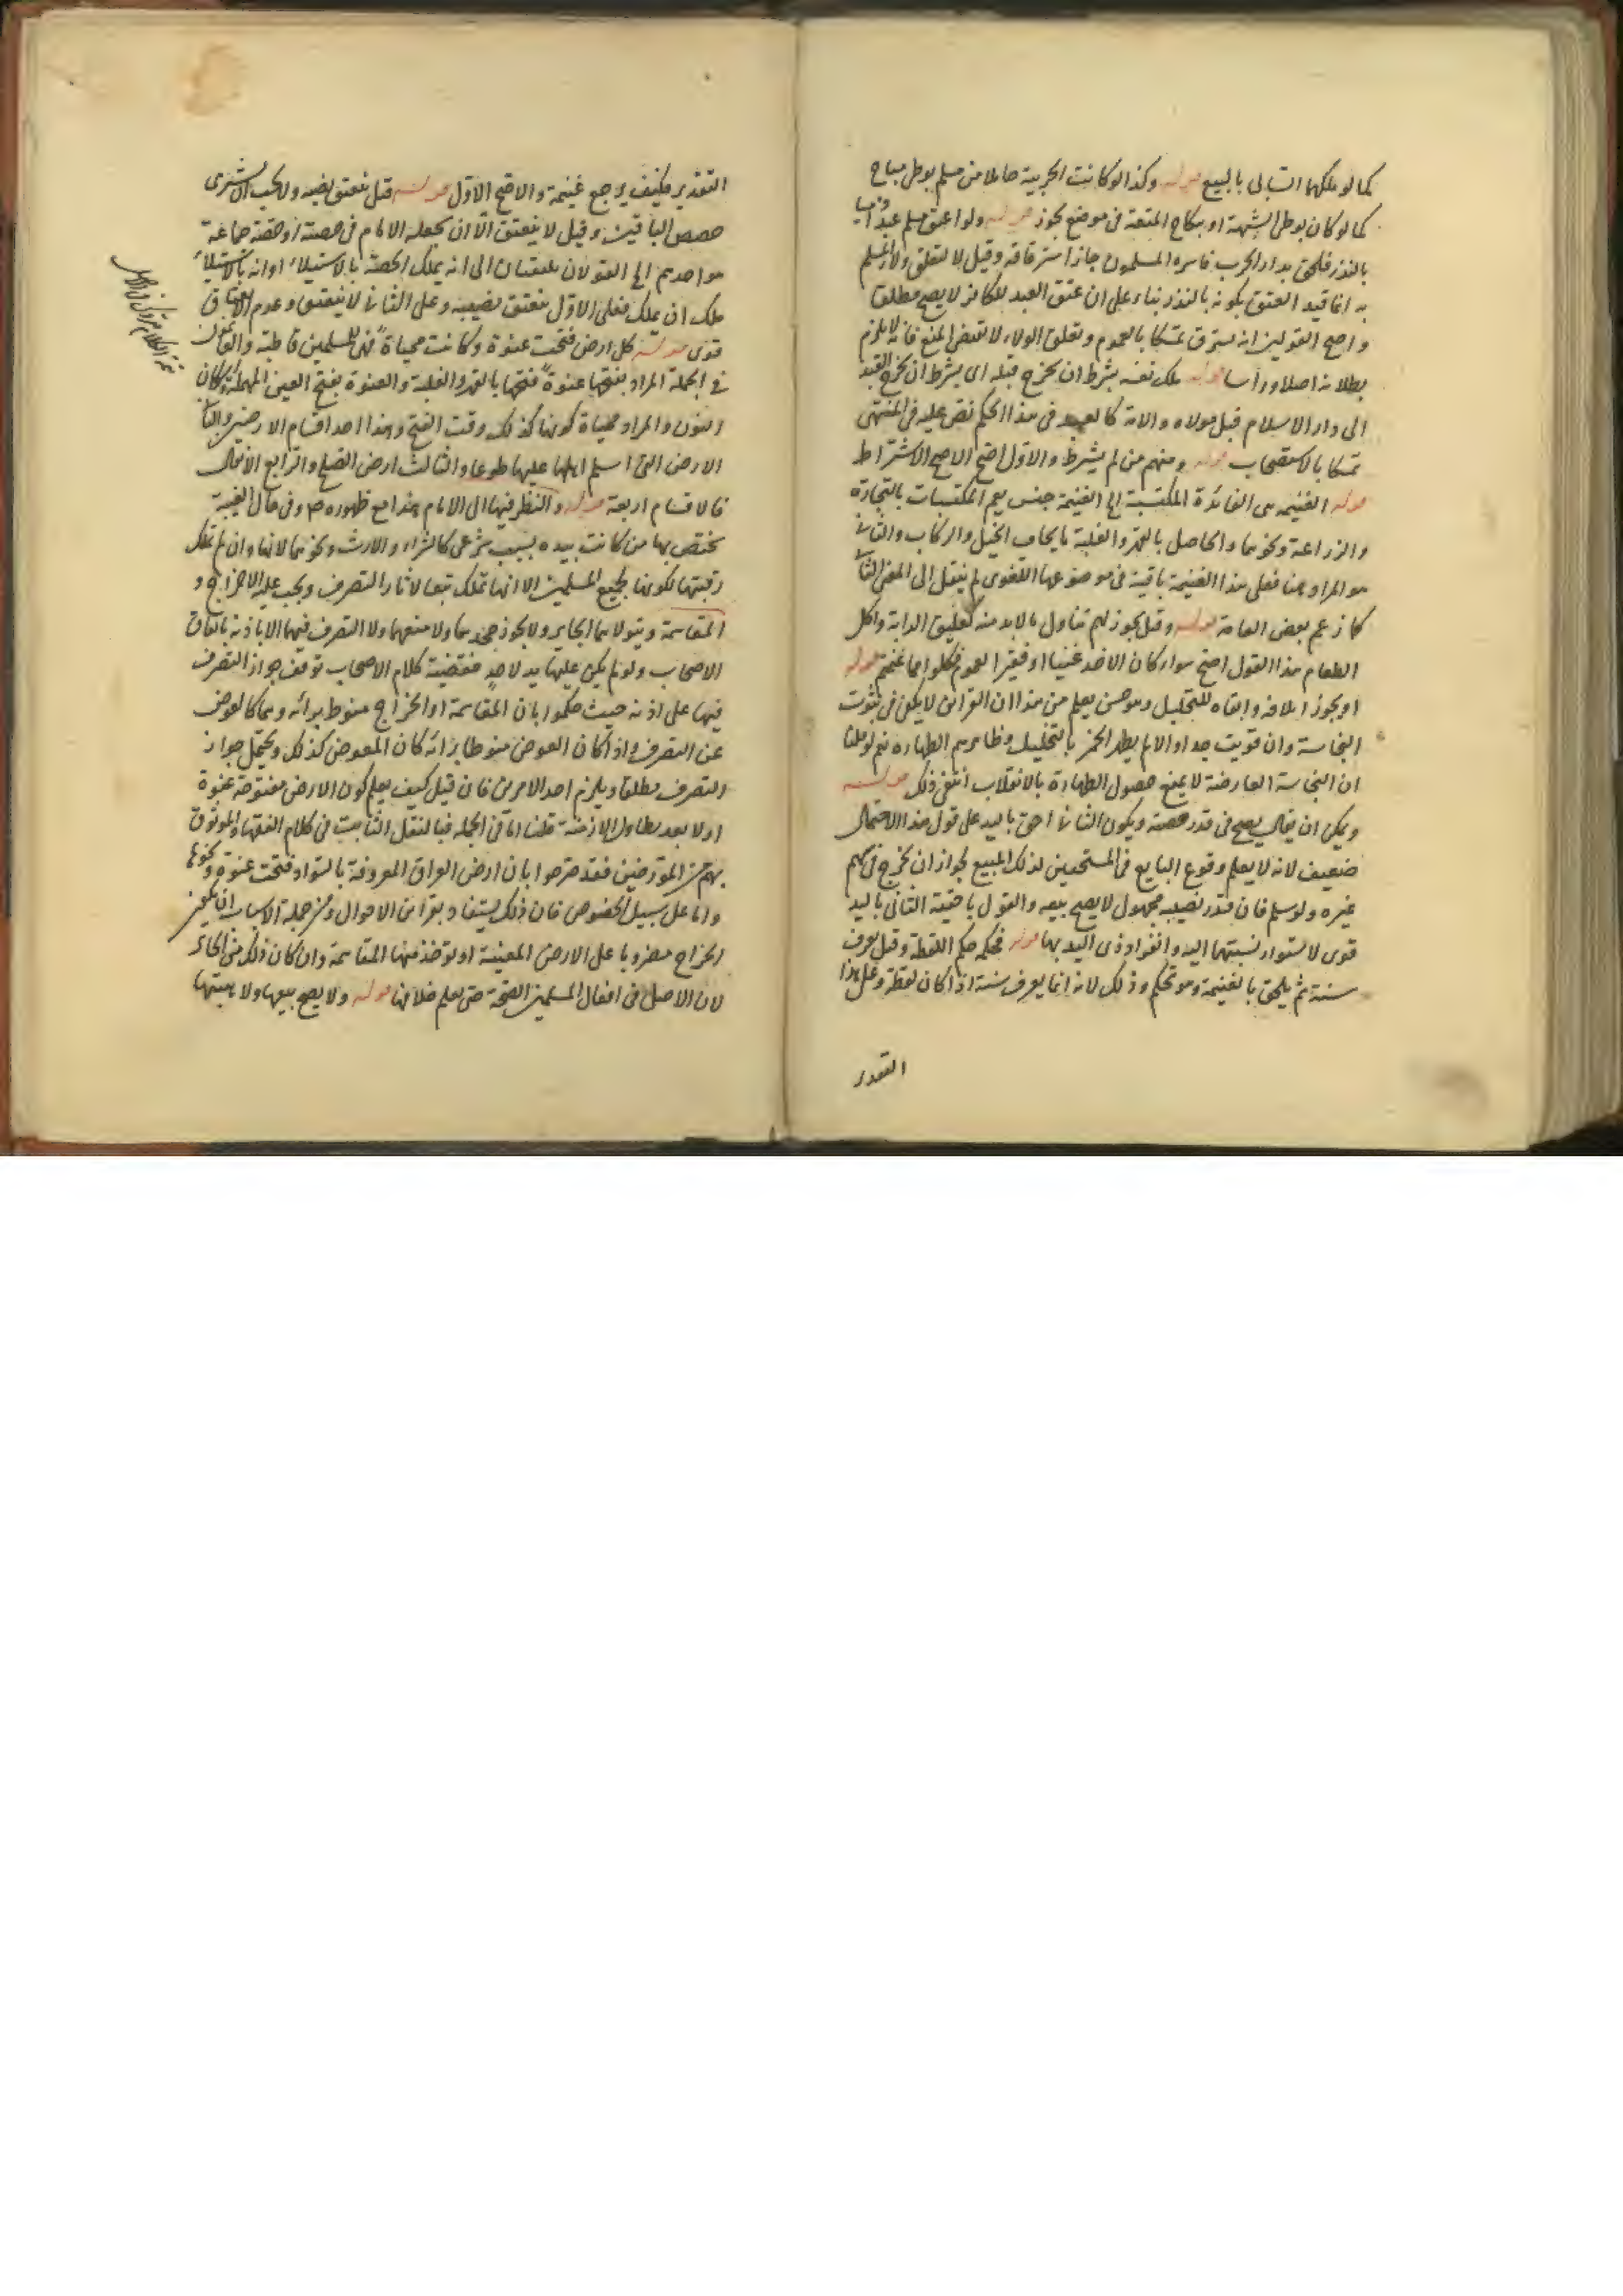 كما لو ملكها السابى بالبيع قوله وكذا لو كانت الحربية حاملا من مسلم بوطى مباح
كما لو كان بوطى الشبهة او بنكاح المتعة فى موضع يجوز قوله ولو اعتق مسلم عبدا ذميا
بالنذر فلحق بدار الحرب فاسره المسلمون جاز استرقاقه وقيل لا لتعلق ولاء المسلم
به انما قيد العتق بكونه بالنذر بناء على ان عتق العبد الكافر لا يصح مطلقا
واصح القولين انه يسترق تمسكا بالعموم وتعلق الولاء لا يقتضى المنع فانه لا يلزم
بطلانه اصلا ورأسا قوله ملك نفسه بشرط ان يخرج قبله اى بشرط ان يخرج العبد
الى دار الاسلام قبل مولاه والامة كالعبد فى هذا الحكم نص عليه فى المنتهى
تمسكا بالاستصحاب قوله ومنهم من لم يشرط والاول اصح الاصح الاشتراط
قوله الغنيمة هى الفائدة المكتسبة الخ الغنيمة جنس يعم المكتسبات بالتجارة
والزراعة ونحوهما والحاصل بالقهر والغلبة بايجاف الخيل والركاب والثانى
هو المراد هنا فعلى هذا الغنيمة باقية فى موضوعها اللغوى لم ينتقل الى المعنى الثانى
كما زعم بعض العامة قوله وقيل يجوز لهم تناول ما لا بد منه كعليق الدابة واكل
الطعام هذا القول اصح سواء كان الاخذ غنيا او فقيرا لعموم فكلوا مما غنمتم قوله
او يجوز اتلافه وابقاه للتخليل وهو حسن يعلم من هذا ان القرائن لا يكفى فى ثبوت
النجاسة وان قويت جدا والا لم يطهر الخمر بالتخليل وظاهرهم الطهارة نعم لو قلنا
ان النجاسة العارضة لا يمنع حصول الطهارة بالانقلاب انتفى ذلك قوله
ويمكن ان يقال يصح فى قدر حصته ويكون الثانى احق باليد على قول هذا الاحتمال
ضعيف لانه لا يعلم وقوع البايع فى المستحقين لذلك المبيع لجواز ان يخرج فى سهم
غيره ولو سلم فان قدر نصيبه مجهول لا يصح بيعه والقول باحقية الثانى باليد
قوى لاستواء نسبتهما اليه وانفراد ذى اليد بها قوله فحكمه حكم اللقطة وقيل يعرف
سنة ثم يلحق بالغنيمة وهو تحكم وذلك لانه انما يعرف سنة اذا كان لقطة وعلى هذا
التقدير
التقدير فكيف يرجع غنيمة والاصح الاول قوله قيل ينعتق نصيبه ولا يجب ان يشترى
حصص الباقين وقيل لا ينعتق الا ان يجعله الامام فى حصته او حصة جماعة
هو احدهم الخ القولان يلتفتان الى انه يملك الحصة بالاستيلاء او انه بالاستيلاء
ملك ان يملك فعلى الاول ينعتق نصيبه وعلى الثانى لا ينعتق وعدم الانعتاق
قوى قوله كل ارض فتحت عنوة وكانت محياة فهى للمسلمين قاطبة والغانمون
فى الجملة المراد بفتحها عنوة فتحها بالقهر والغلبة والعنوة بفتح العين المهملة واسكان
النون والمراد بمحياة كونها كذلك وقت الفتح وهذا احد اقسام الارضين والثانى
الارض التى اسلم اهلها عليها طوعا والثالث ارض الصلح والرابع الانفال
فالاقسام اربعة قوله والنظر فيها الى الامام هذا مع ظهوره ع م وفى حال الغيبة
يختص بها من كانت بيده بسبب شرعى كالشراء والارث ونحوهما لانها وان لم تملك
رقبتها لكونها لجميع المسلمين الا انها تملك تبعا لاثار التصرف ويجب عليه الاخراج و
المقاسمة ويتولاهما الجاير ولا يجوز جحدهما ولا منعهما ولا التصرف فيها الا باذنه باتفاق
الاصحاب ولو لم يكن عليها يد لاحد فقضية كلام الاصحاب توقف جواز التصرف
فيها على اذنه حيث حكموا بان المقاسمة او الخراج منوط برائه وهما كالعوض
عن التصرف واذا كان العوض منوطا برائه كان المعوض كذلك ويحتمل جواز
التصرف مطلقا ويلزم احد الامرين فان قيل كيف يعلم كون الارض مفتوحة عنوة
او لا بعد تطاول الازمنة قلنا اما فى الجملة فبالنقل الثابت فى كلام الفقهاء والموثوق
بهم من المؤرخين فقد صرحوا بان ارض العراق المعروفة بالسواد فتحت عنوة ونحوها
واما على سبيل الخصوص فان ذلك يستفاد بقرائن الاحوال ومن جملة الاسباب ان يكون
الخراج مضروبا على الارض المعينة او تؤخذ منها المقاسمة وان كان ذلك من الجائر
لان الاصل فى افعال المسلمين الصحة حتى يعلم خلافها قوله ولا يصح بيعها ولا هبتها